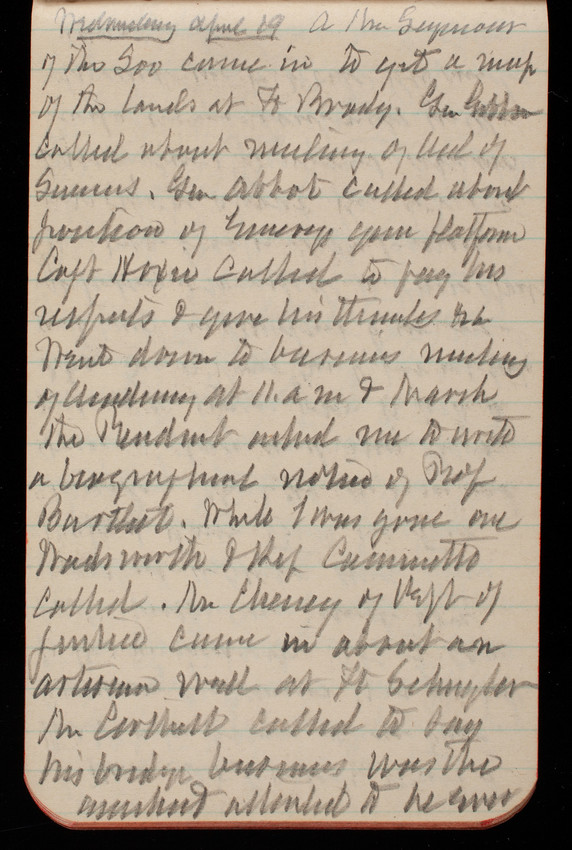 Wednesday April 19 A Mr Seymour
of the Soo came in to get a map
of the lands at Ft Brady. Gen Gibbon
called about meeting of Acd of
Sciences. Gen Abbot called about
position of Emery's gun platform
Capt Hoxie called to pay his
respects & give his thanks &c
Went down to business meeting
of Academy at 11. a m & Marsh
the President asked me to write
a biographical notice of Prof
Bartlett. While I was gone
Wadsworth & Rep Caminetti
called. Mr Cheney of Dept of
Justice came in about an
artesian well at Ft Schuyler
Mr Corthell called to say
his bridge business was the
attended to